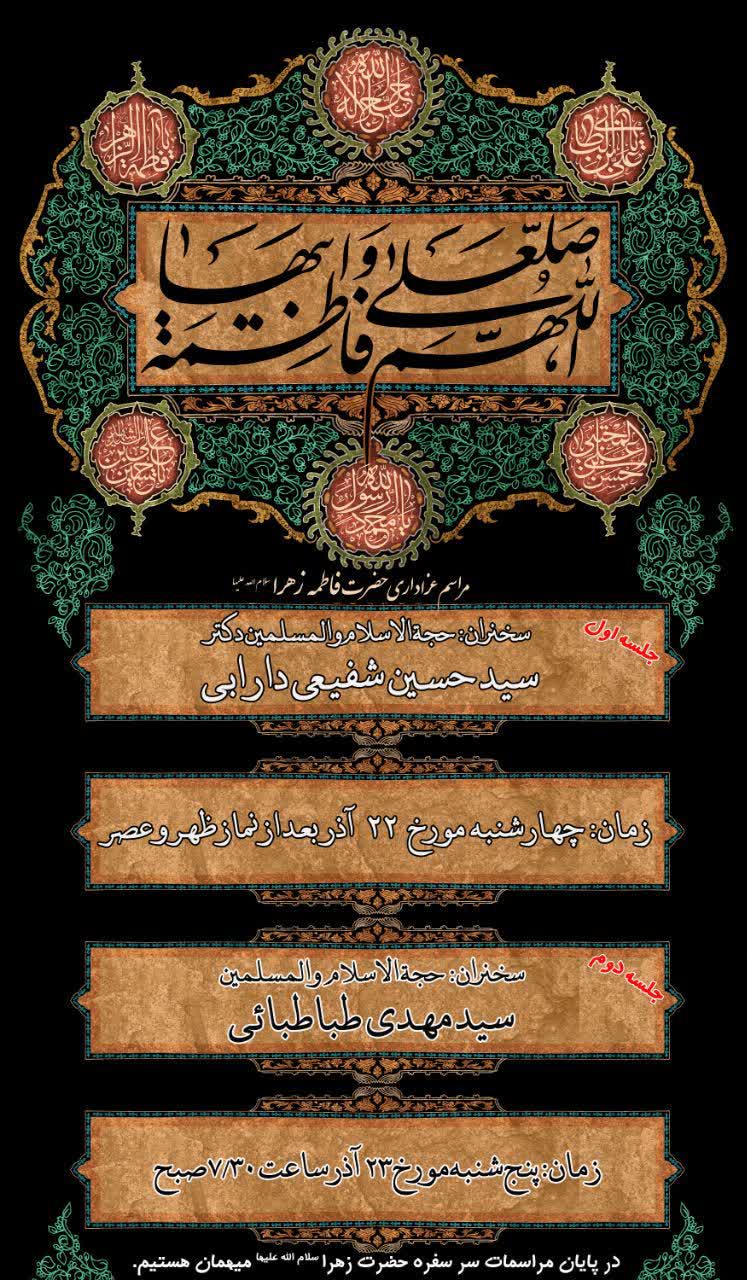 جل جلاله
یا فاطمة الزهرا
اللهم صل علی فاطمة و ابیها
یا محمد رسول الله
مراسم عزاداری حضرت فاطمه زهرا سلام الله علیها
جلسه اول
سخنران: حجة الاسلام والمسلمین دکتر
سید حسین شفیعی دارابی
زمان: چهارشنبه مورخ ۲۲ آذر بعد از نماز ظهر و عصر
جلسه دوم
سخنران: حجة الاسلام والمسلمین
سید مهدی طباطبائی
زمان: پنج شنبه مورخ ۲۳ آذر ساعت ۷/۳۰ صبح
در پایان مراسمات سر سفره حضرت زهرا سلام الله علیها میهمان هستیم.